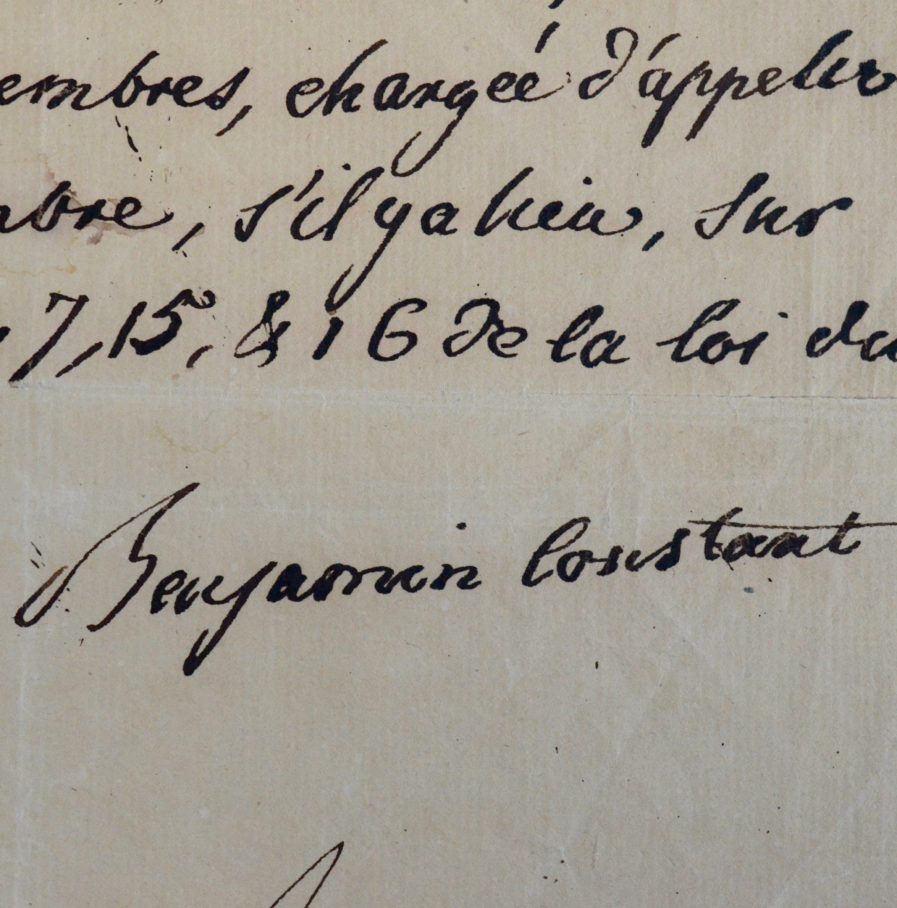 embres, chargée d'appeler
mbre, s'il y a lieu, sur
7, 15, & 16 de la loi du
Benjamin Constant